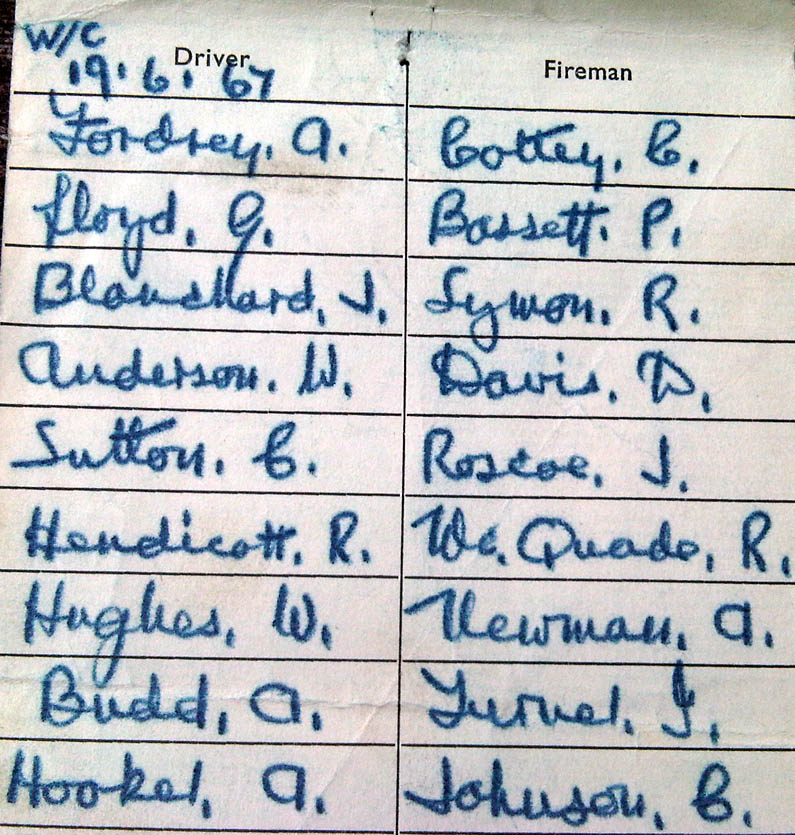 W/C
Driver Fireman
19.6.67
Fordrey, A. Cottey, C.
Lloyd, G. Bassett. P.
Blanchard, J. Symon, R.
Anderson. W. Davis, D.
Sutton. C. Roscoe, J.
Hendicott, R. Mc. Quade, R.
Hughes, W. Newman, A.
Budd, A. Turner. J.
Hooker, A. Johnson, C.